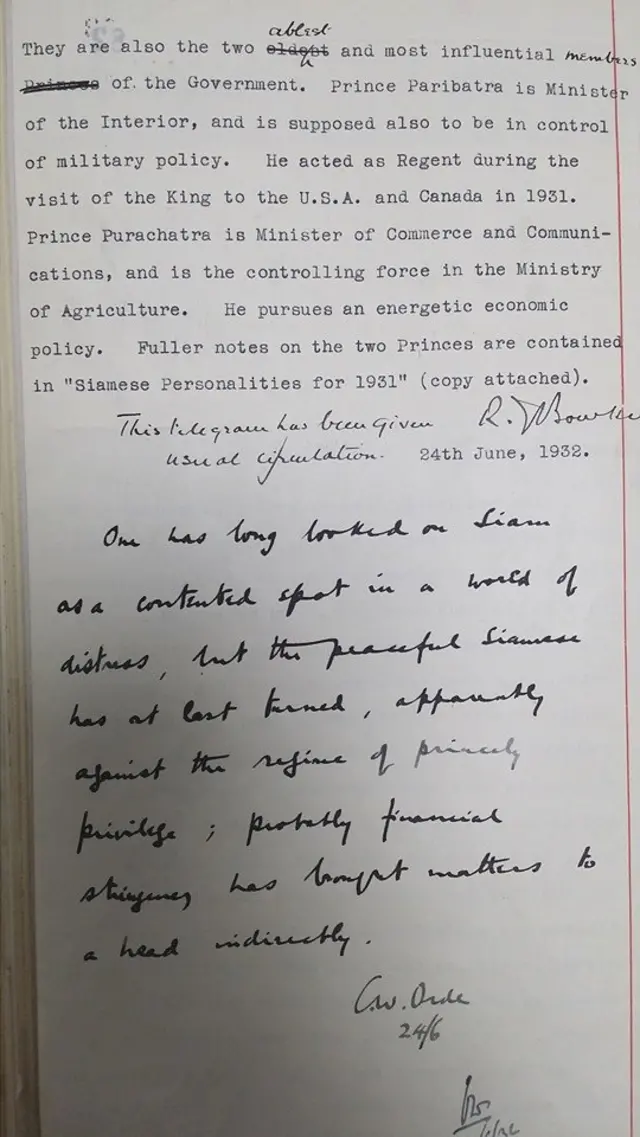 ablest
They are also the two eldest and most influential members
Princes of the Government. Prince Paribatra is Minister
of the Interior, and is supposed also to be in control
of military policy. He acted as Regent during the
visit of the King to the U.S.A. and Canada in 1931.
Prince Purachatra is Minister of Commerce and Communi-
cations, and is the controlling force in the Ministry
of Agriculture. He pursues an energetic economic
policy. Fuller notes on the two Princes are contained
in "Siamese Personalities for 1931" (copy attached).
This telegram has been given
usual circulation. 24th June, 1932.
One has long looked on Siam
as a contented spot in a world of
distress, but the peaceful Siamese
has at last turned, apparently
against the regime of princely
privilege; probably financial
stringency has brought matters to
a head indirectly.
C.W. Orde
24/6